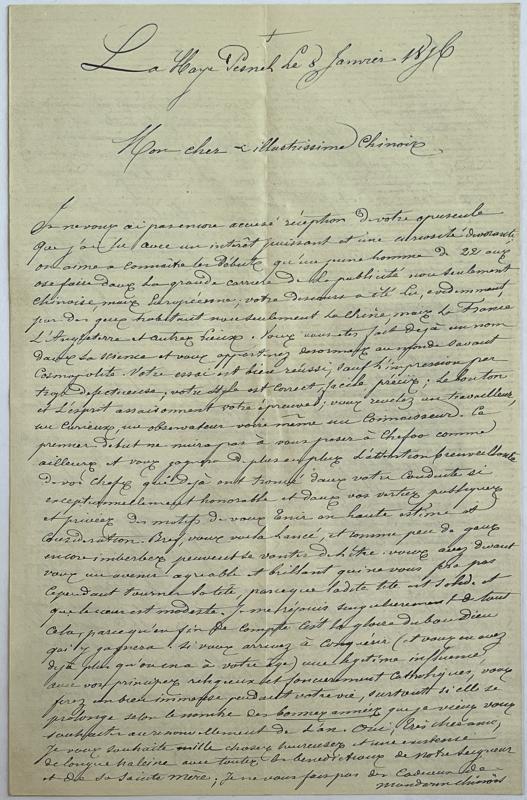 +
La Haye Pesnel le 8 Janvier 1896
Mon cher & illustrissime Chinois
Je ne vous ai pas encore accusé réception de votre opuscule
que j'ai lu avec un intérêt puissant et une curiosité dévorante
on aime à connaître les débuts qu'un jeune homme de 22 ans
ose faire dans la grande carrière de la publicité non seulement
chinoise, mais Européenne; votre discours a été lu, évidemment
par des gens habitant non seulement la Chine, mais la France
l'Angleterre et autres lieux. Vous vous êtes fait déjà un nom
dans la science et vous appartenez désormais au monde savant
cosmopolite. Votre essai est bien réussi, sauf l'impression par
trop défectueuse; votre style est correct, facile, précis; le bon ton
et l'esprit assaisonnent votre épreuve; vous révélez un travailleur,
un curieux, un observateur voire même un connaisseur. Ce
premier début ne nuira pas à vous poser à Chefoo comme
ailleurs et vous gagnera de plus en plus l'attention bienveillante
de vos chefs qui déjà ont trouvé dans votre conduite si
exceptionnellement honorable et dans vos vertus publiques
et privées des motifs de vous tenir en haute estime et
considération. Bref, vous voilà lancé, et comme peu de gens
encore imberbes peuvent se vanter de l'être. vous avez devant
vous un avenir agréable et brillant qui ne vous fera pas
cependant tourner la tête, parce que ladite tête est solide et
que le cœur est modeste. Je me réjouis singulièrement de tout
cela, parce qu'en fin de compte c'est la gloire du bon Dieu
qui y gagnera. Si vous arrivez à conquérir (et vous en avez
déjà plus qu'on en a à votre âge) une légitime influence
avec vos principes religieux et foncièrement catholiques, vous
ferez un bien immense pendant votre vie, surtout si elle se
prolonge selon le nombre des bonnes années que je viens vous
souhaiter au renouvellement de l'an. Oui, très cher ami,
Je vous souhaite mille choses heureuses et une existence
de longue haleine avec toutes les bénédictions de Notre Seigneur
et de sa Sainte Mère; Je ne vous fais pas des cadeaux de
mandarin chinois